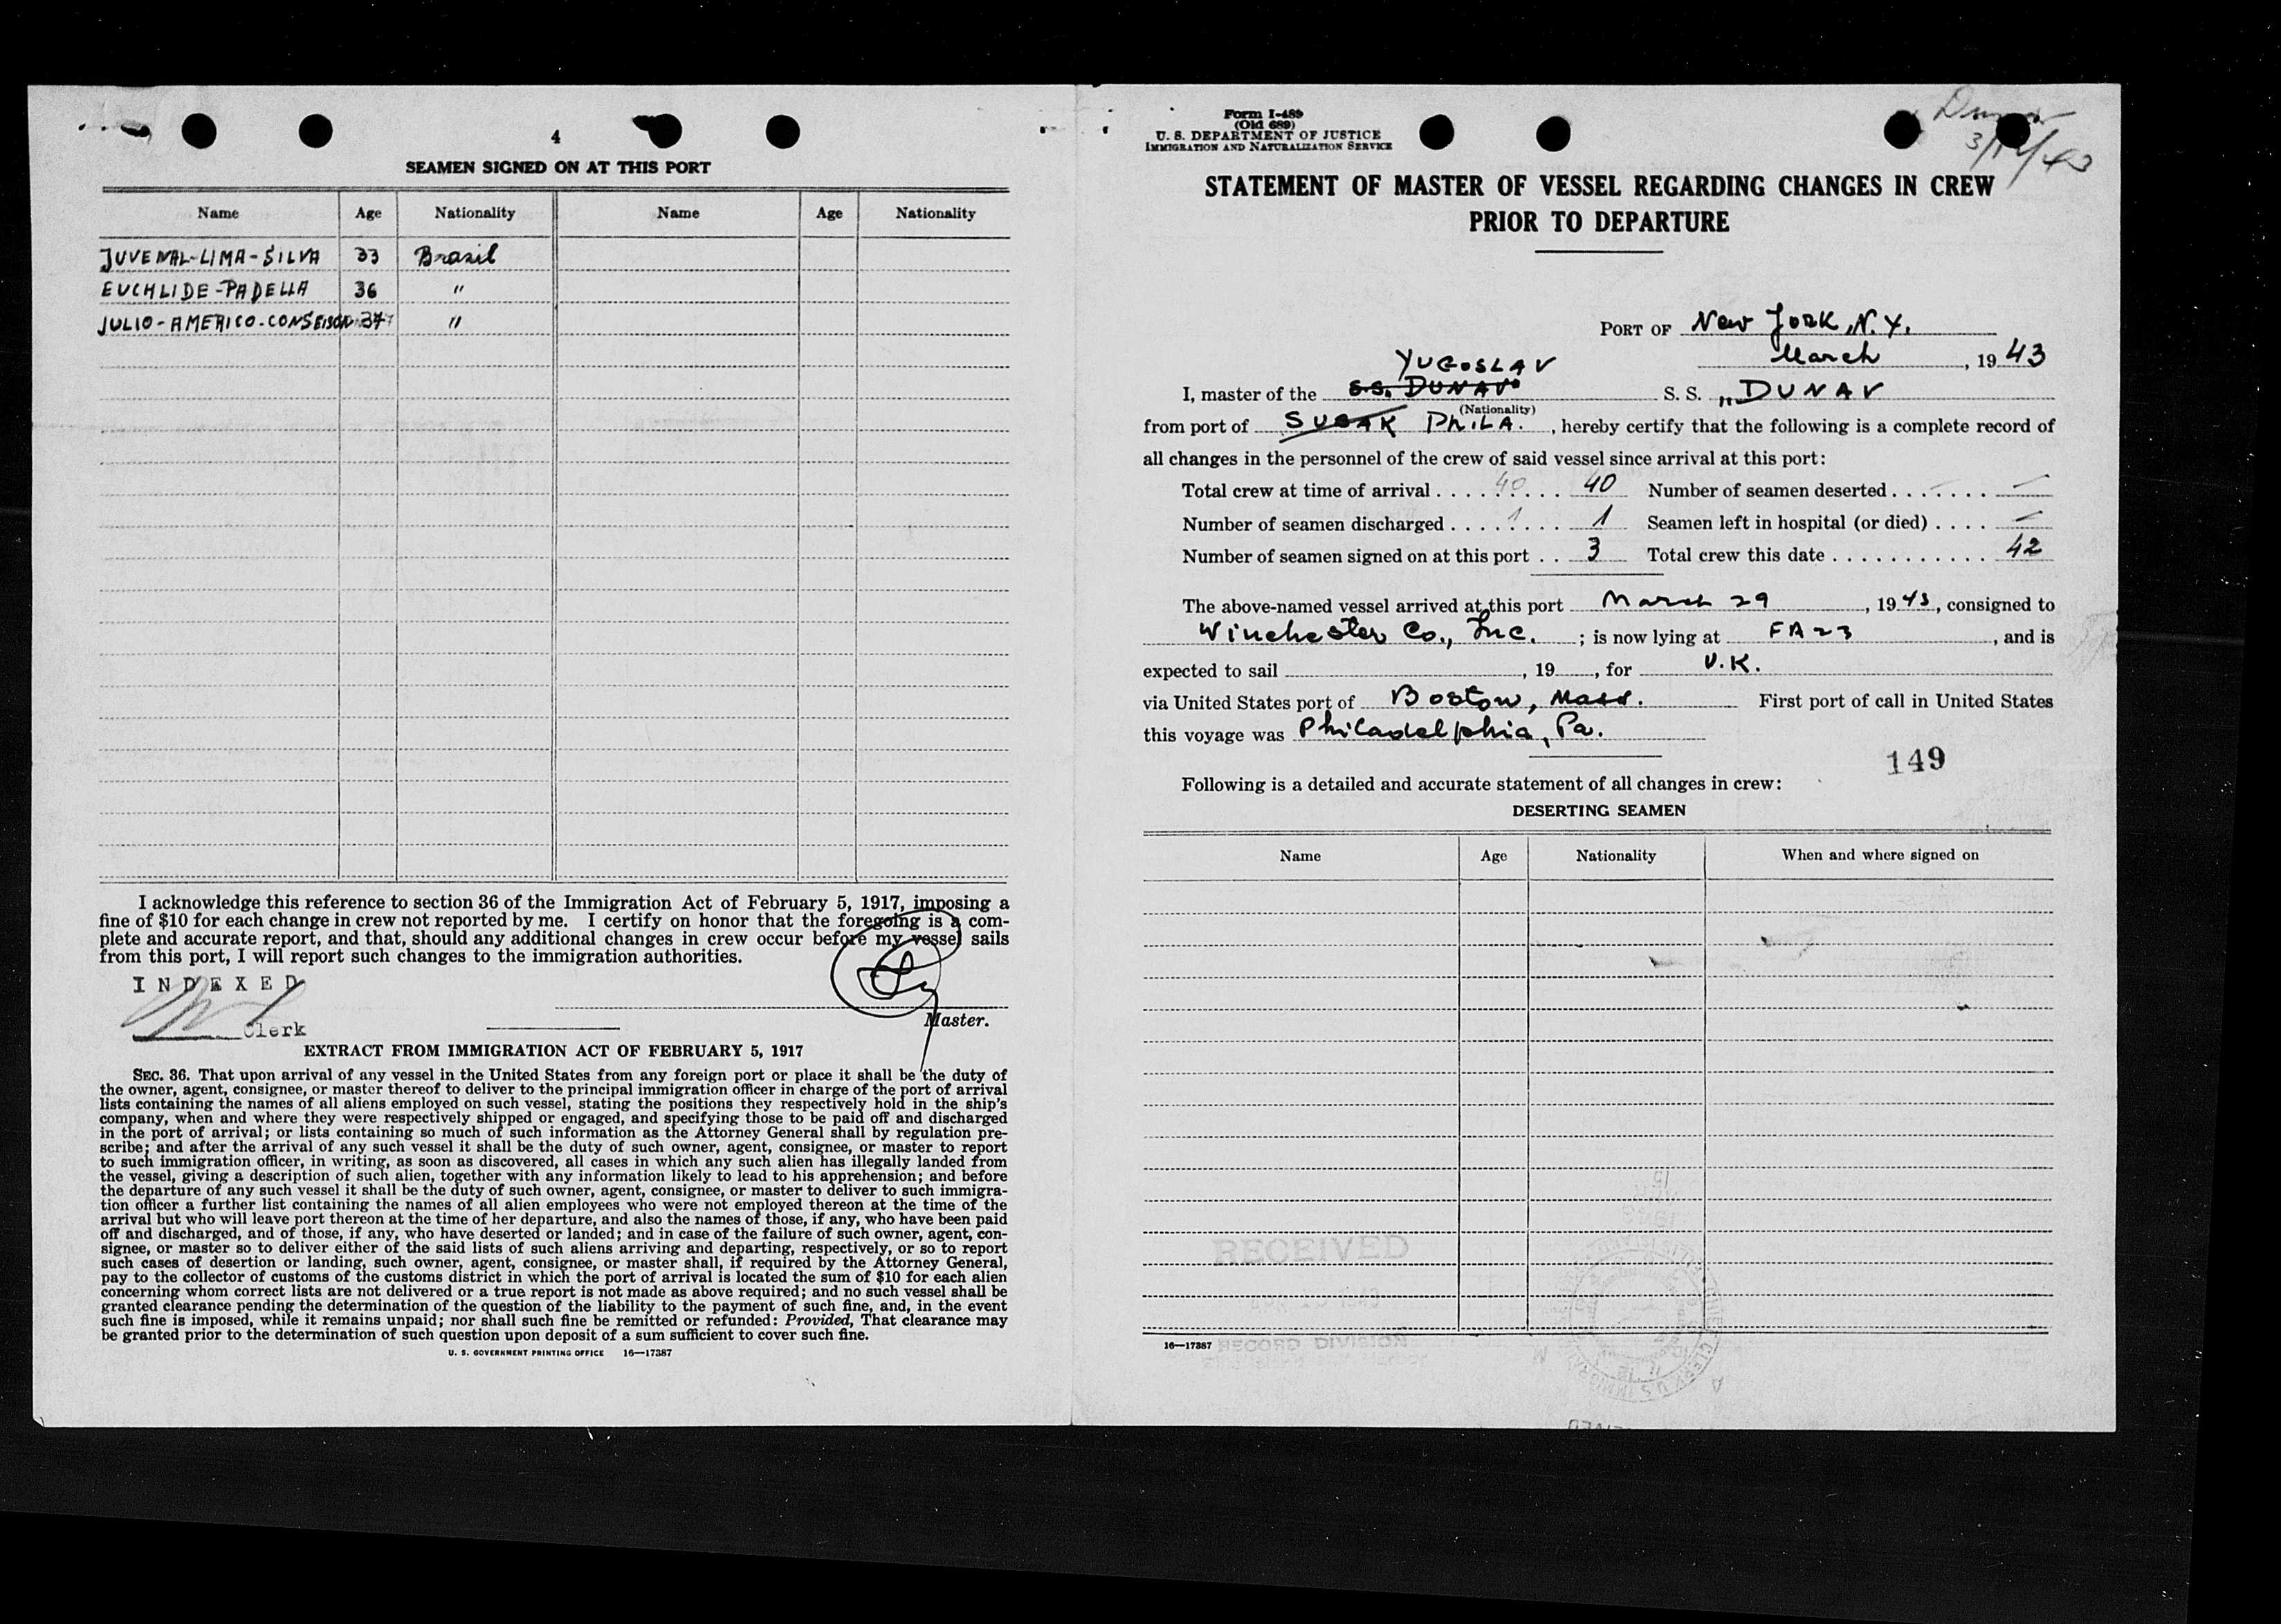 4
SEAMEN SIGNED ON AT THIS PORT
Name Age Nationality Name Age Nationality
JUVENAL-LIMA-SILVA 33 Brasil
EUCHLIDE-PADELLA 36 "
JULIO-AMERICO- 37 "
I acknowledge this reference to section 36 of the Immigration Act of February 5, 1917, imposing a
fine of $10 for each change in crew not reported by me. I certify on honor that the foregoing is a com-
plete and accurate report, and that, should any additional changes in crew occur before my vessel sails
from this port, I will report such changes to the immigration authorities.
INDEXED
Clerk
Master.
EXTRACT FROM IMMIGRATION ACT OF FEBRUARY 5, 1917
SEC. 36. That upon arrival of any vessel in the United States from any foreign port or place it shall be the duty of
the owner, agent, consignee, or master thereof to deliver to the principal immigration officer in charge of the port of arrival
lists containing the names of all aliens employed on such vessel, stating the positions they respectively hold in the ship's
company, when and where they were respectively shipped or engaged, and specifying those to be paid off and discharged
in the port of arrival; or lists containing so much of such information as the Attorney General shall by regulation pre-
scribe; and after the arrival of any such vessel it shall be the duty of such owner, agent, consignee, or master to report
to such immigration officer, in writing, as soon as discovered, all cases in which any such alien has illegally landed from
the vessel, giving a description of such alien, together with any information likely to lead to his apprehension; and before
the departure of any such vessel it shall be the duty of such owner, agent, consignee, or master to deliver to such immigra-
tion officer a further list containing the names of all alien employees who were not employed thereon at the time of the
arrival but who will leave port thereon at the time of her departure, and also the names of those, if any, who have been paid
off and discharged, and of those, if any, who have deserted or landed; and in case of the failure of such owner, agent, con-
signee, or master so to deliver either of the said lists of such aliens arriving and departing, respectively, or so to report
such cases of desertion or landing, such owner, agent, consignee, or master shall, if required by the Attorney General,
pay to the collector of customs of the customs district in which the port of arrival is located the sum of $10 for each alien
concerning whom correct lists are not delivered or a true report is not made as above required; and no such vessel shall be
granted clearance pending the determination of the question of the liability to the payment of such fine, and, in the event
such fine is imposed, while it remains unpaid; nor shall such fine be remitted or refunded: Provided, That clearance may
be granted prior to the determination of such question upon deposit of a sum sufficient to cover such fine.
U. S. GOVERNMENT PRINTING OFFICE 16—17387
Form I-489
(Old 689)
U. S. DEPARTMENT OF JUSTICE
IMMIGRATION AND NATURALIZATION SERVICE
STATEMENT OF MASTER OF VESSEL REGARDING CHANGES IN CREW
PRIOR TO DEPARTURE
PORT OF New York, N.Y.
March, 1943
YUGOSLAV
I, master of the S.S. DUNAV S. S. „DUNAV
(Nationality)
from port of SUŠAK PhILA., hereby certify that the following is a complete record of
all changes in the personnel of the crew of said vessel since arrival at this port:
Total crew at time of arrival . . . . 40 . . . 40 Number of seamen deserted . . . . . . . —
Number of seamen discharged . . . . 1 . . . 1 Seamen left in hospital (or died) . . . . —
Number of seamen signed on at this port . . 3 Total crew this date . . . . . . . . . . . . 42
The above-named vessel arrived at this port March 29, 1943, consigned to
Winchester Co., Inc.; is now lying at FA23, and is
expected to sail , 19 , for U.K.
via United States port of Boston, Mass. First port of call in United States
this voyage was Philadelphia, Pa.
149
Following is a detailed and accurate statement of all changes in crew:
DESERTING SEAMEN
Name Age Nationality When and where signed on
RECEIVED
16—17387 RECORD DIVISION